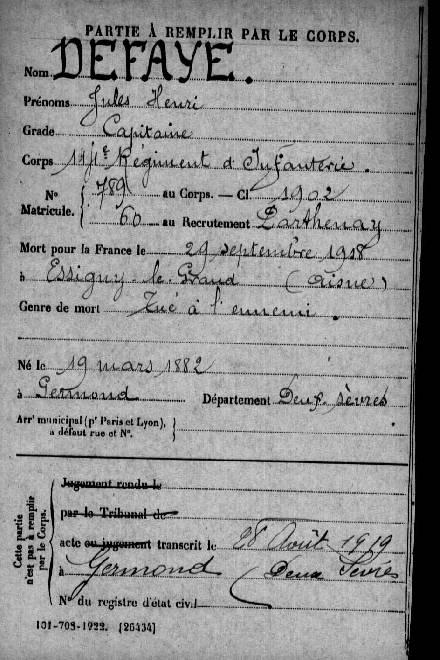 PARTIE À REMPLIR PAR LE CORPS.
Nom DEFAYE.
Prénoms Jules Henri
Grade Capitaine
Corps 114e Régiment d'Infanterie.
No Matricule. { 789 au Corps. — Cl. 1902
60 au Recrutement Parthenay
Mort pour la France le 29 septembre 1918
à Essigny-le-Grand (Aisne)
Genre de mort Tué à l'ennemi.
Né le 19 mars 1882
à Germond Département Deux sèvres
Arrt municipal (pr Paris et Lyon),
à défaut rue et No.
Cette partie
n'est pas à remplir
par le Corps.
Jugement rendu le
par le Tribunal de
acte ou jugement transcrit le 28 Août 1919
à Germond (Deux Sèvres
No du registre d'état civil
101-708-1922. [26434]